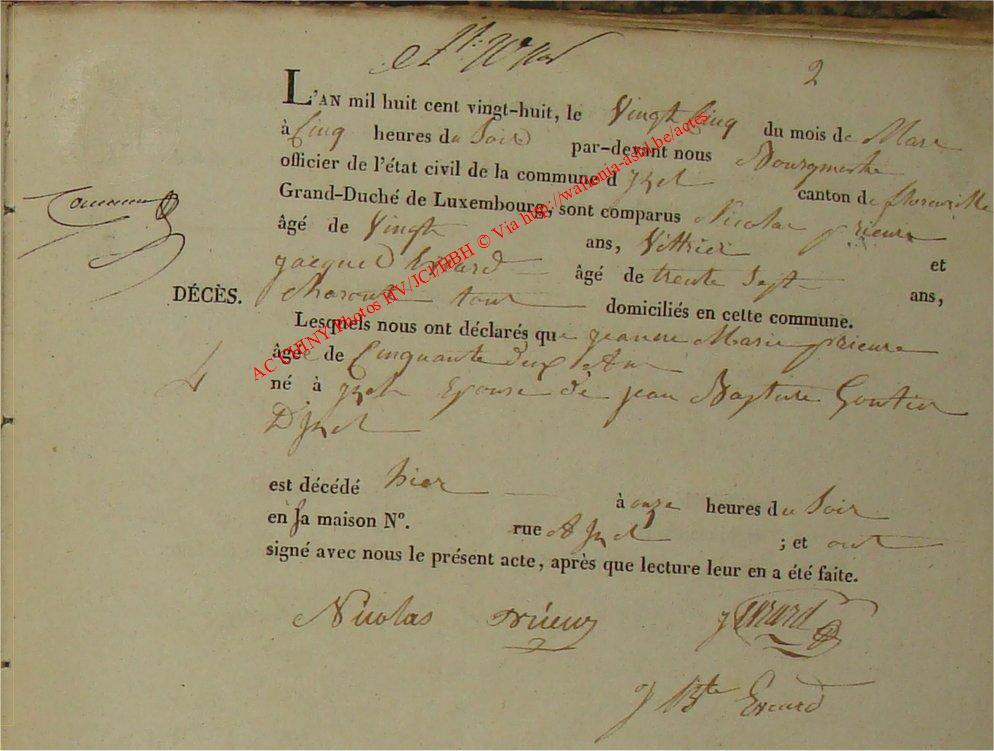 2
L'AN mil huit cent vingt-huit, le Vingt Cinq du mois de Mars
à Cinq heures du Soir par-devant nous Bourgmestre
officier de l'état civil de la commune d'Izel canton de florenville
Grand-Duché de Luxembourg, sont comparus Nicolas prieur
âgé de Vingt ans, Vittrier et
jacques Evrard âgé de trente Sept ans,
tout domiciliés en cette commune.
DÉCÈS.
Lesquels nous ont déclarés que jeanne Marie prieur
âgée de Cinquante deux Ans
né à jzel Epouse de jean Baptiste
D'jzel
est décédé hier à onze heures du Soir
en Sa maison N°. rue A jzel ; et ont
signé avec nous le présent acte, après que lecture leur en a été faite.
Nicolas prieur j Evrard
j Bte Evrard
AC CHINY Photos HV/JCF/HBH © Via http://wallonia-asbl.be/actes